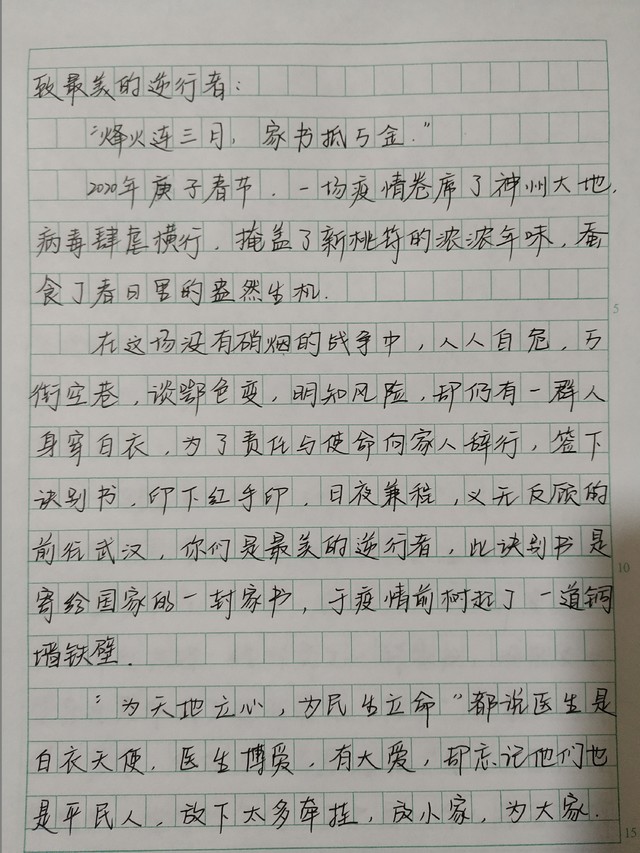 致最美的逆行者：
“烽火连三月，家书抵万金.”
2020年庚子春节.一场疫情卷席了神州大地,
病毒肆虐横行.掩盖了新桃符的浓浓年味，蚕
食了春日里的盎然生机.
在这场没有硝烟的战争中，人人自危，万
5
街空巷，谈鄂色变，明知风险，却仍有一群人
身穿白衣，为了责任与使命向家人辞行，签下
诀别书，印下红手印，日夜兼程，义无反顾的
前往武汉，你们是最美的逆行者，此诀别书是
寄给国家的一封家书，于疫情前树起了一道铜
10
墙铁壁.
“为天地立心，为民生立命”都说医生是
白衣天使.医生博爱，有大爱，却忘记他们也
是平民人，放下太多牵挂，放小家，为大家.
15